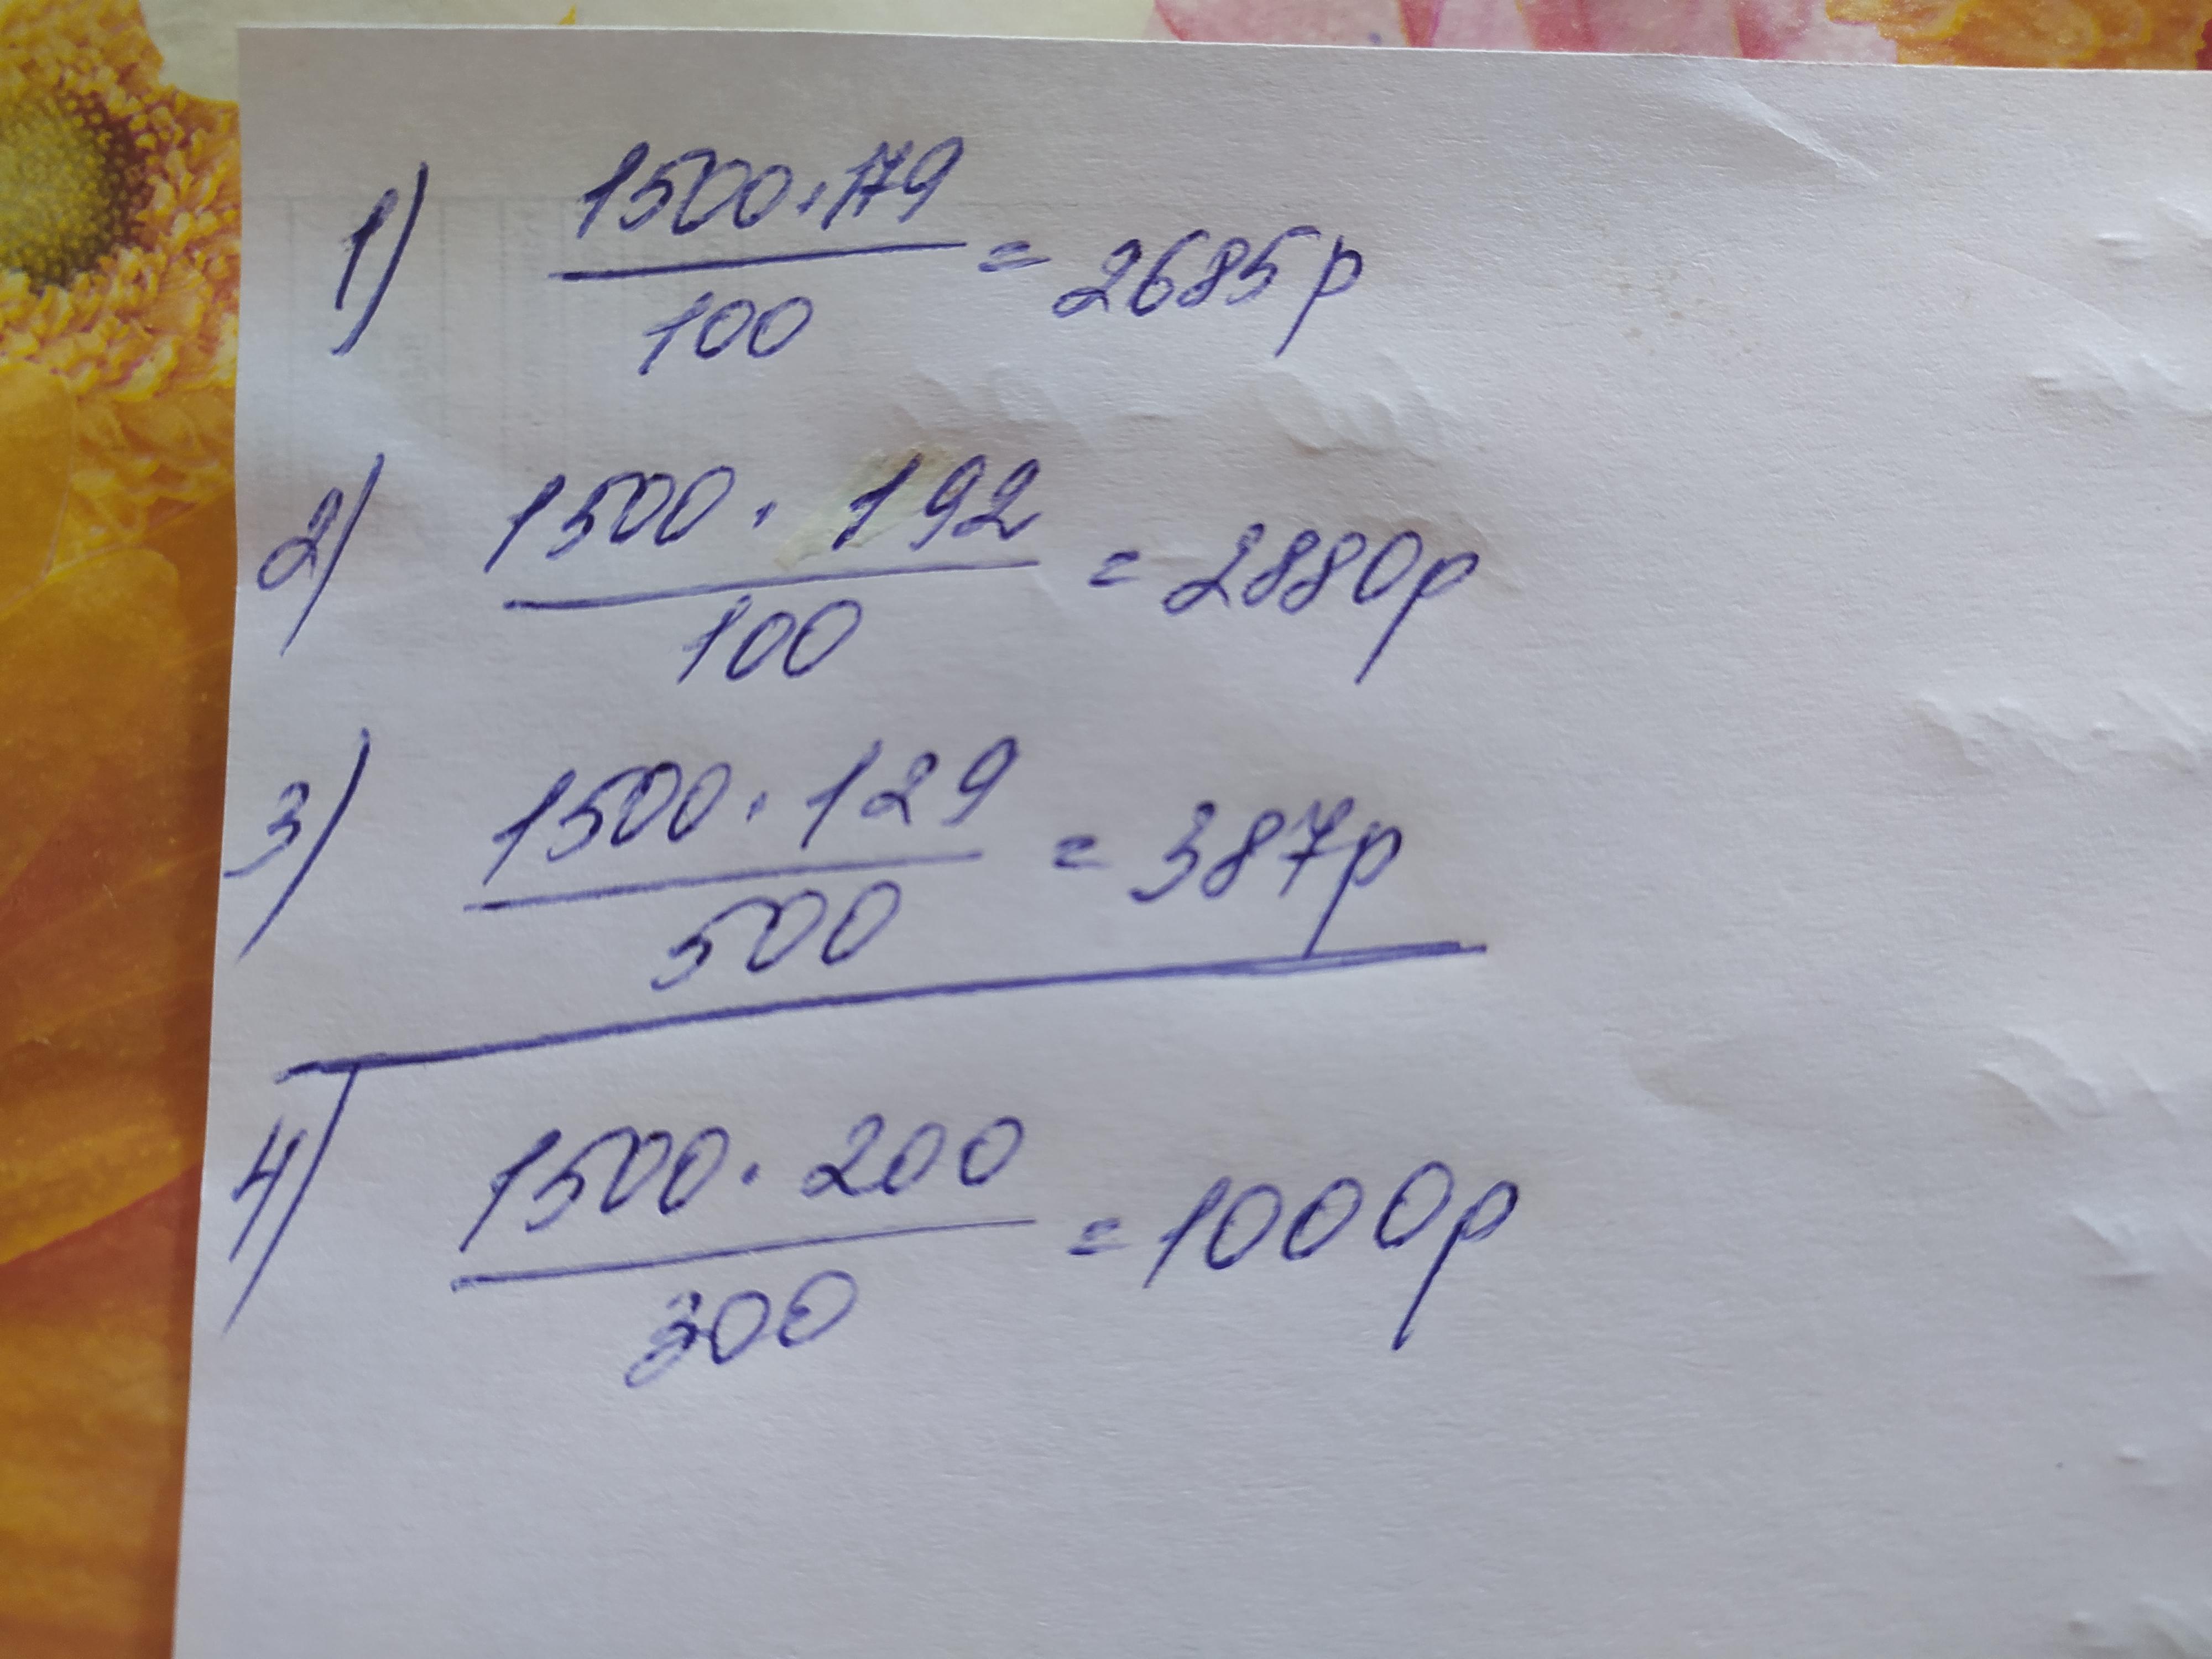 1) 1500·179
100 = 2685р
2) 1500· 192
100 = 2880р
3) 1500·129
500 = 387р
4) 1500·200
300 = 1000р